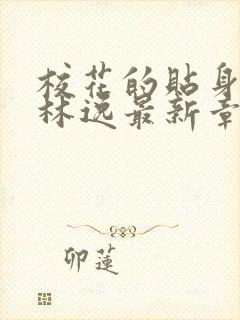 校花的贴身
林逸最新章
卯莲